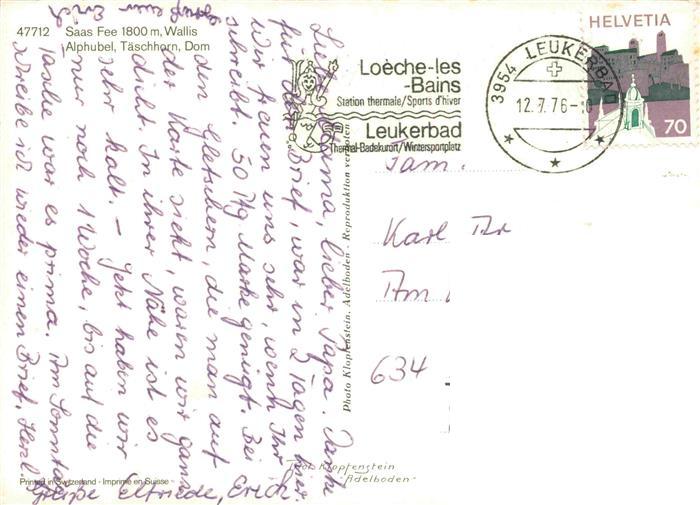 47712 Saas Fee 1800 m, Wallis
Alphubel, Täschhorn, Dom
Loèche-les
-Bains
Station thermale/Sports d'hiver
Leukerbad
Thermal-Badekurort/Wintersportplatz
3954 LEUKERBAD
12.7.76
HELVETIA
70
Liebe Mama, lieber Papa. Danke
für den Brief, war in 2 Tagen hier.
Wir freuen uns sehr, wenn Ihr
schreibt. 50 Pfg Marke genügt. Bei
den Gletschern, die man auf
der Karte sieht, waren wir ganz
dicht. In ihrer Nähe ist es
sehr kalt. – Jetzt haben wir
nur noch 1 Woche, bis auf die
war es prima. Am Sonntag
schreibe ich wieder einen Brief. Herzl.
Grüße Elfriede, Erich
Fam.
Karl
Am
634
Photo Klopfenstein, Adelboden - Reproduktion verboten
Photo Klopfenstein
"Adelboden"
Printed in Switzerland - Imprimé en Suisse